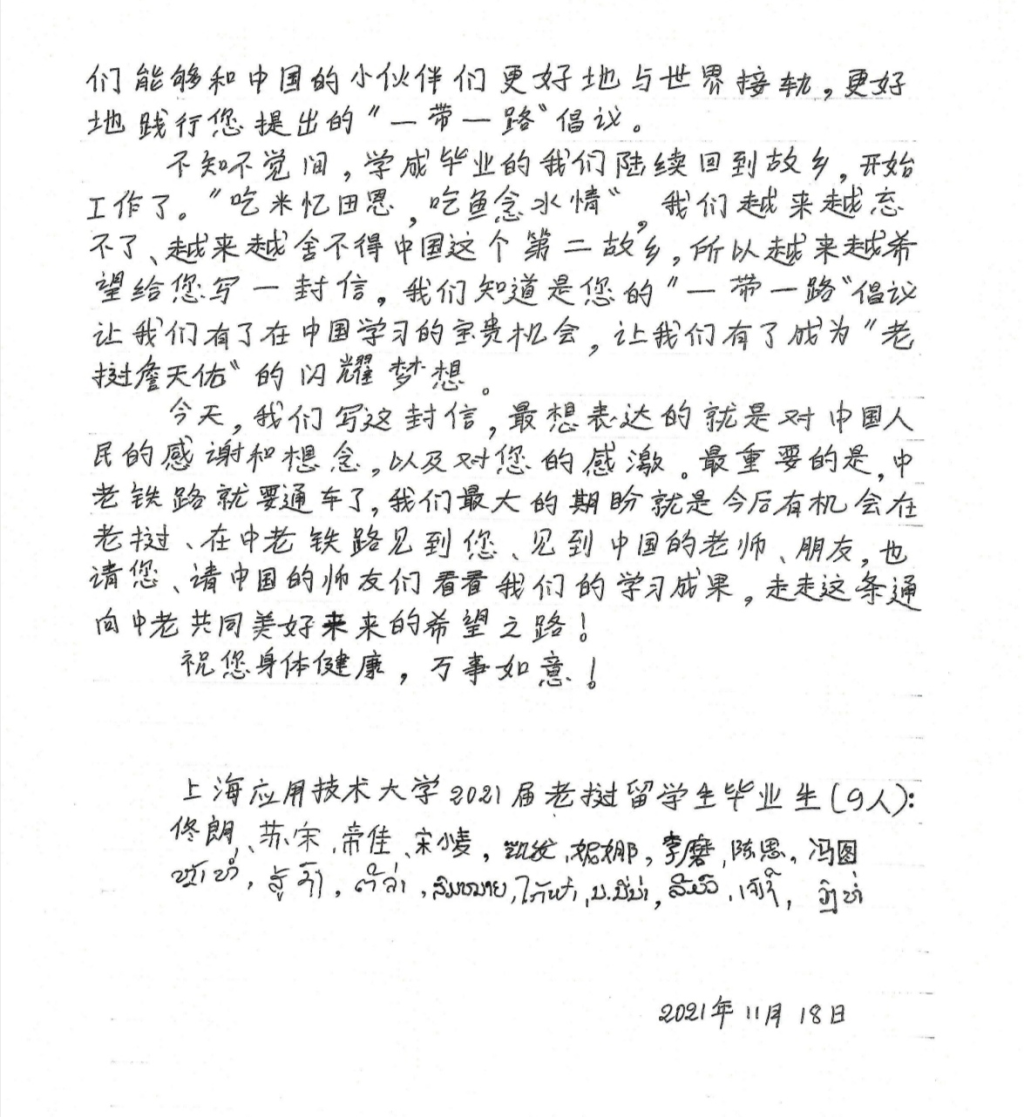 们能够和中国的小伙伴们更好地与世界接轨，更好
地践行您提出的"一带一路"倡议。
不知不觉间，学成毕业的我们陆续回到故乡，开始
工作了。"吃米忆田恩，吃鱼念水情"，我们越来越忘
不了、越来越舍不得中国这个第二故乡，所以越来越希
望给您写一封信，我们知道是您的"一带一路"倡议
让我们有了在中国学习的宝贵机会，让我们有了成为"老
挝詹天佑"的闪耀梦想。
今天，我们写这封信，最想表达的就是对中国人
民的感谢和想念，以及对您的感激。最重要的是，中
老铁路就要通车了，我们最大的期盼就是今后有机会在
老挝、在中老铁路见到您、见到中国的老师、朋友，也
请您、请中国的师友们看看我们的学习成果，走走这条通
向中老共同美好未来的希望之路！
祝您身体健康，万事如意！
上海应用技术大学2021届老挝留学生毕业生（9人）：
佟朗、苏宋、帝佳、宋小麦，凯欣，妮娜，李磨，陈思，冯图
2021年11月18日